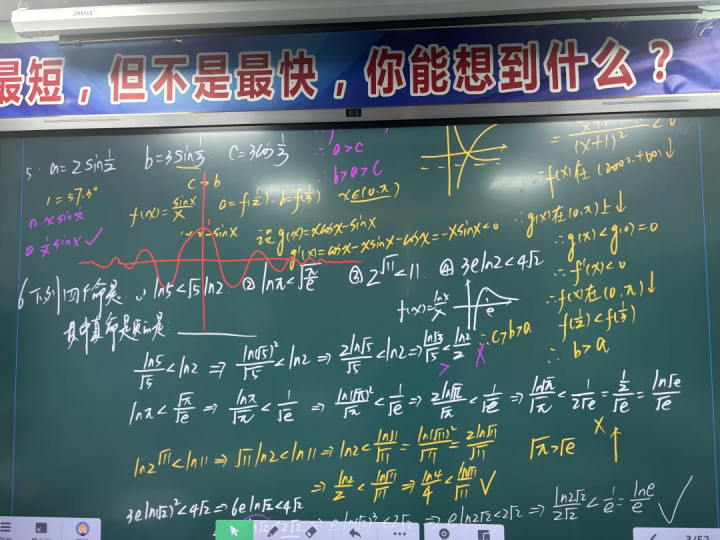 最短，但不是最快，你能想到什么？
5. a=2sin1/2 b=3sin1/3 c=3cos1/3
∴a>c
∴b>a>c
c>b
1=57.3°
① xsinx
② 1/x sinx ✓
f(x)=sinx/x a=f(1/2) b=f(1/3) x∈(0,π)
记g(x)=xcosx-sinx
g'(x)=cosx-xsinx-cosx=-xsinx<0
(x+1)^2 <0
∴g(x)在(0,π)上↓
∴g(x)<g(0)=0
∴f'(x)<0
∴f(x)在(0,π)↓
f(1/2)<f(1/3)
∴b>a
6 下列四个命题 (1) ln5<√5 ln2 ② lnπ<√(π/e) ③ 2^√11<11 ④ 3eln2<4√2
其中真命题的是:
f(x)=lnx/x
e
∴c>b>a
ln5/√5<ln2 ⇒ ln(√5)^2/√5<ln2 ⇒ 2ln√5/√5<ln2 ⇒ ln√5/√5<ln2/2
> X
lnπ<√π/√e ⇒ lnπ/√π<1/√e ⇒ ln(√π)^2/√π<1/√e ⇒ 2ln√π/√π<1/√e ⇒ ln√π/√π<1/2√e=1/2/√e=ln√e/√e
ln2^√11<ln11 ⇒ √11 ln2<ln11 ⇒ ln2<ln11/√11=ln(√11)^2/√11=2ln√11/√11
√π>√e X ↑
⇒ ln2/2<ln√11/√11 ⇒ ln4/4<ln√11/√11 ✓
3eln(√2)^2<4√2 ⇒ 6eln√2<4√2
⇒ eln(√2)^3<2√2 ⇒ eln2√2<2√2 ⇒ ln2√2/2√2<1/e=lne/e ✓
3/52